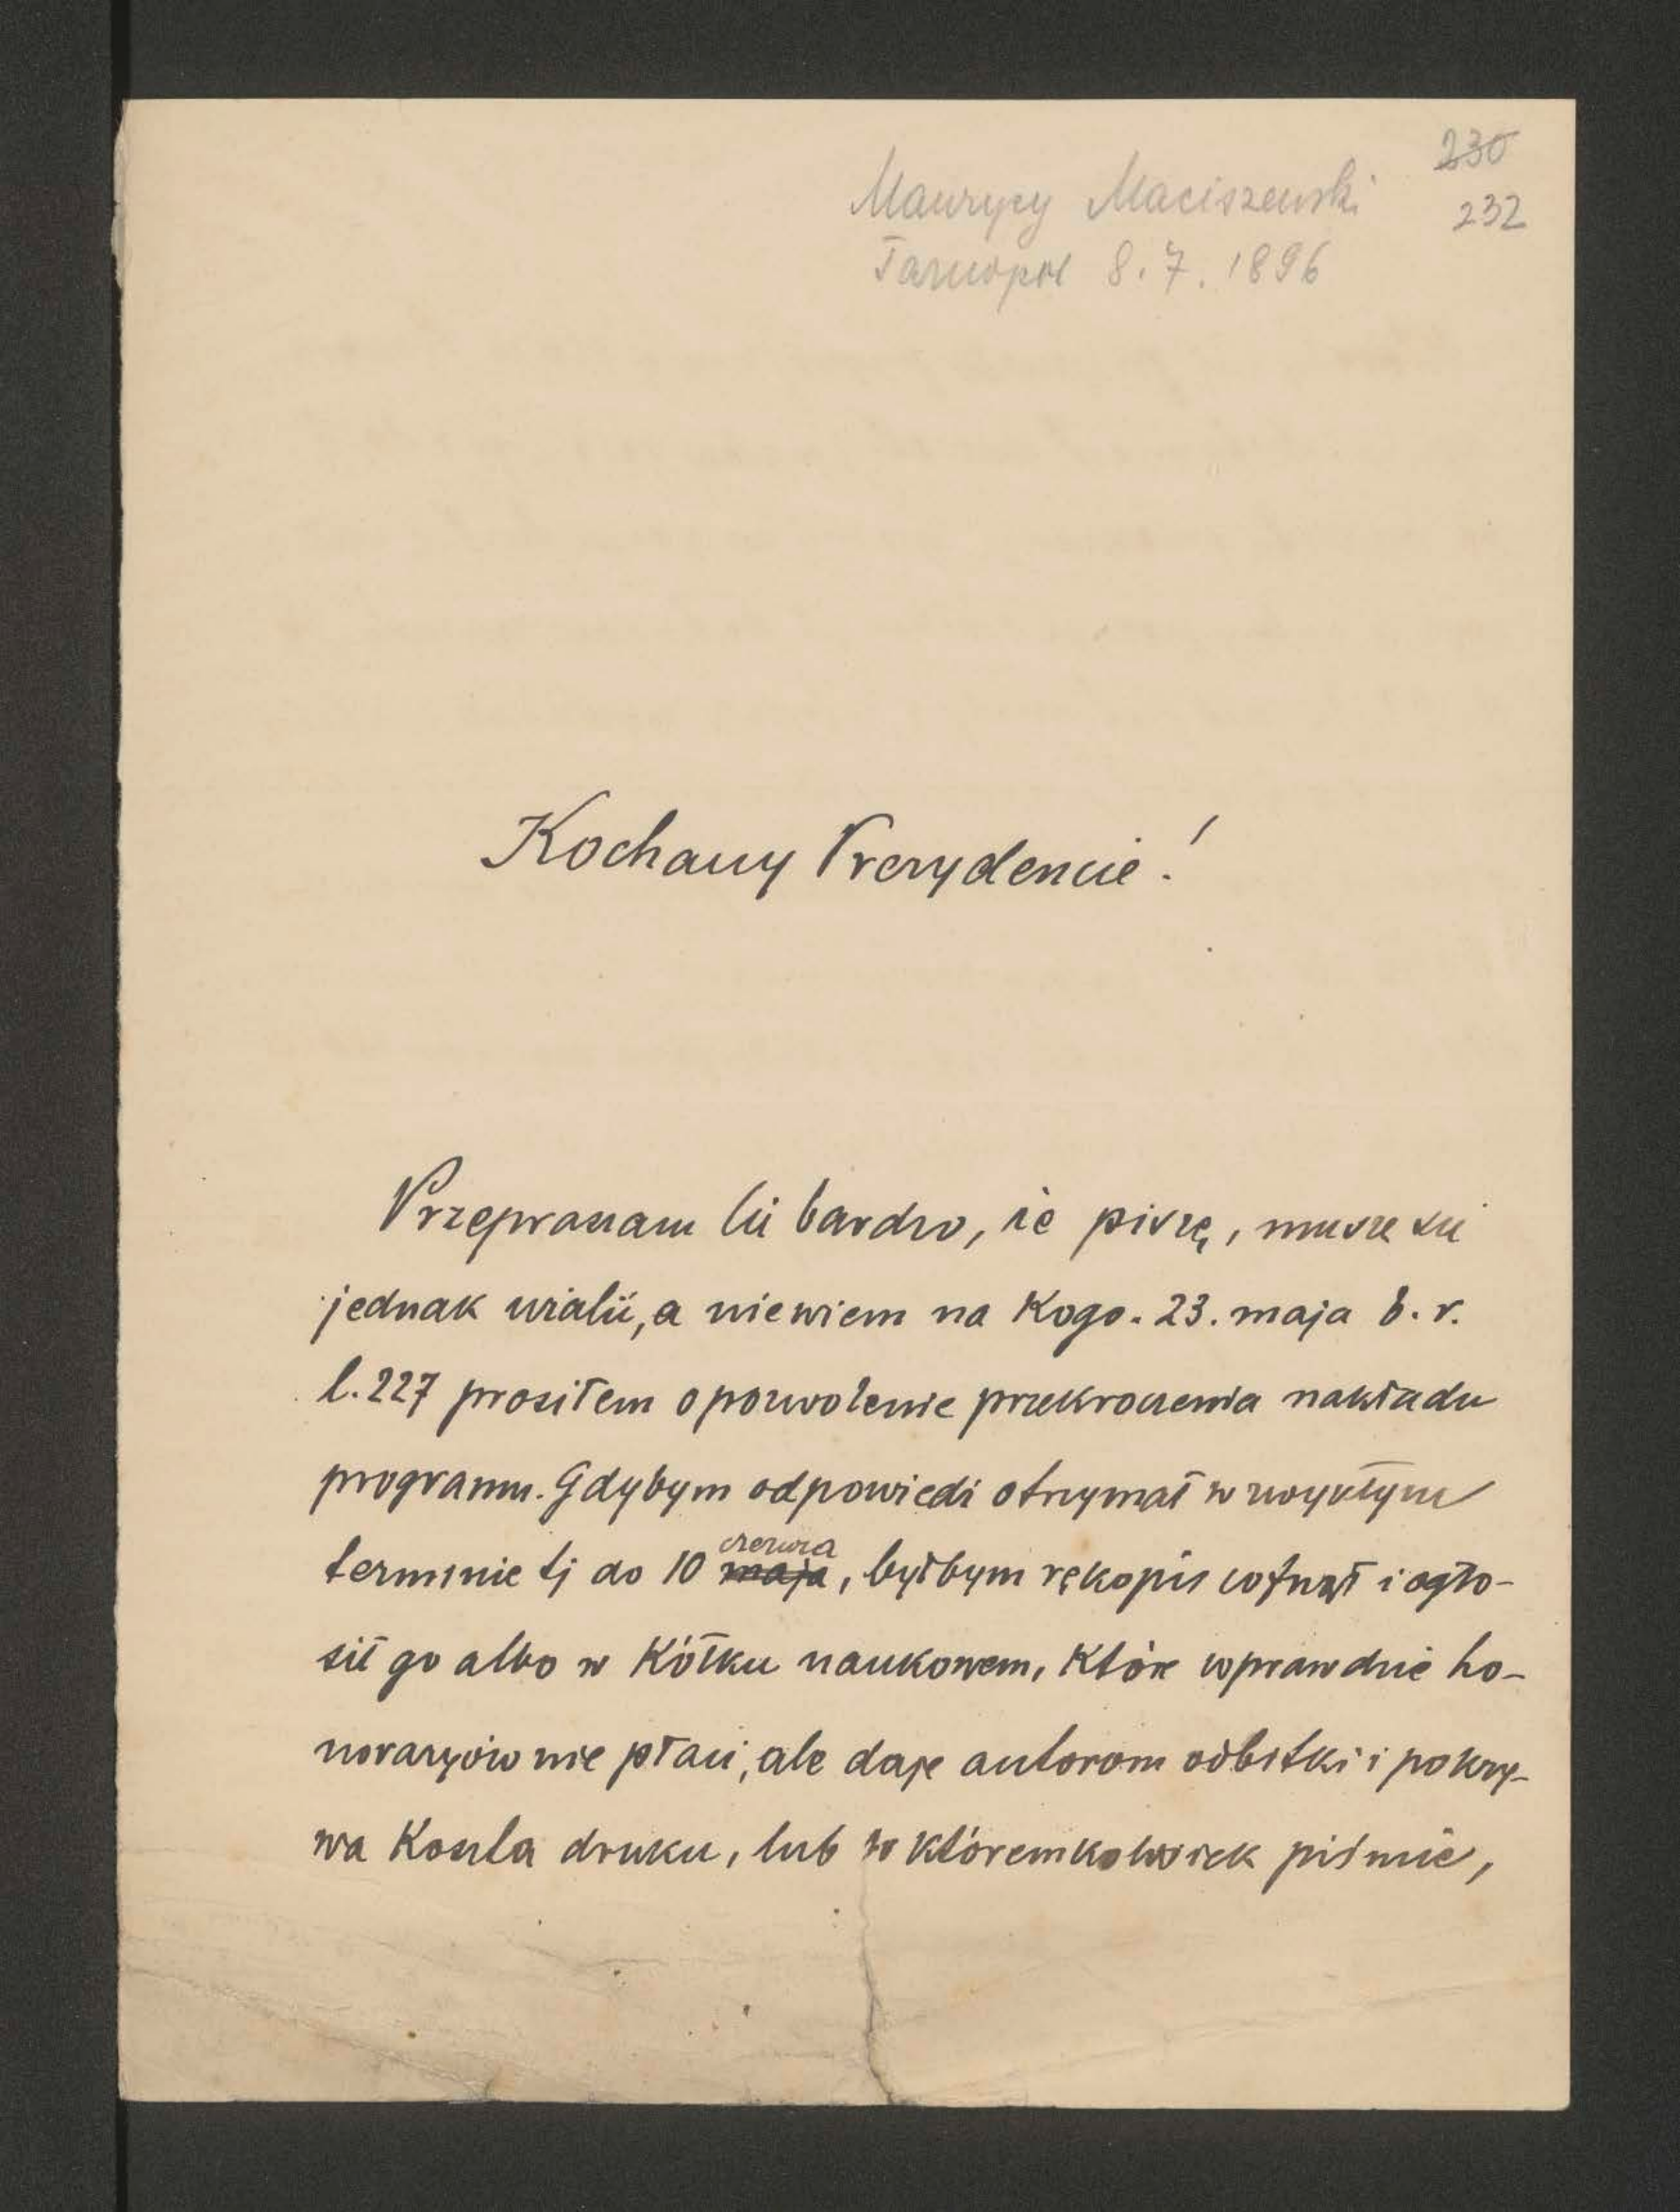 230
Maurycy Maciszewski
232
Tarnopol 8.7.1896
Kochany Prezydencie!
Przepraszam Cię bardzo, że piszę, muszę się
jednak użalić, a niewiem na kogo. 23. maja b. r.
l. 227 prosiłem o pozwolenie przekroczenia nakładu
programu. Gdybym odpowiedź otrzymał w zwykłym
czerwca
terminie tj do 10 maja, byłbym rękopis cofnął i ogło-
sił go albo w Kółku naukowem, które wprawdzie ho-
noraryów nie płaci, ale daje autorom odbitki i pokry-
wa koszta druku, lub w któremkolwiek piśmie,